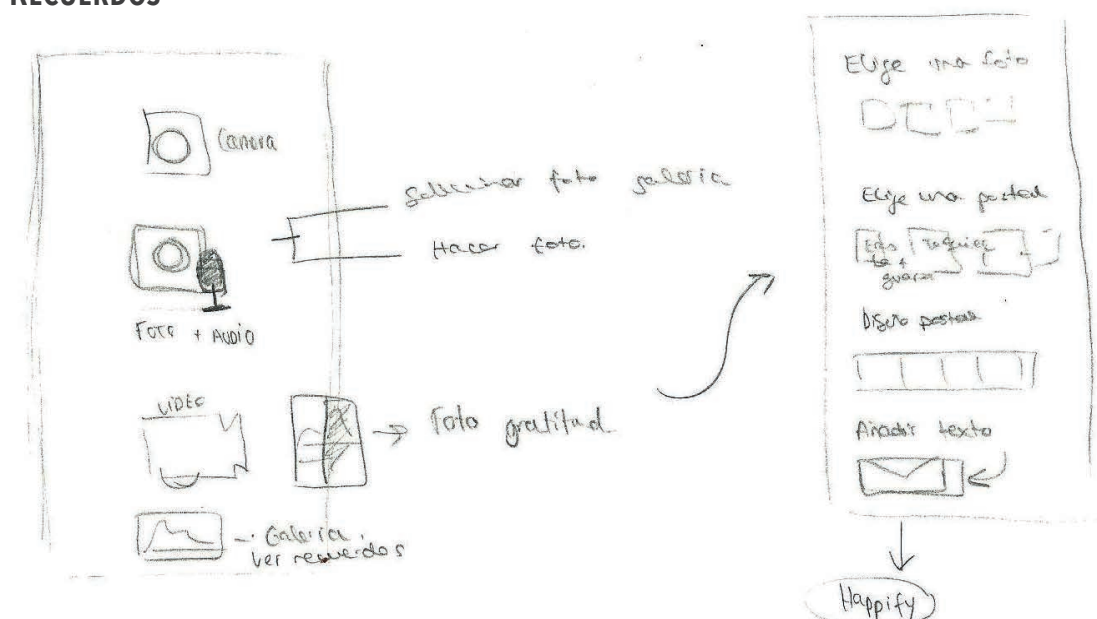 RECUERDOS
Camara
Seleccionar foto galería
Hacer foto.
FOTO + AUDIO
VIDEO
Foto gratitud
Galería.
Ver recuerdos
Elige una foto
Elige una postal
Diseño postal
Añadir texto
Happify